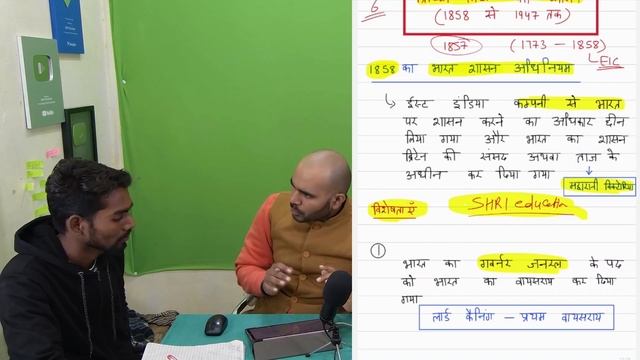 6
(1858 से 1947 तक)
1857 (1773 – 1858)
EIC
1858 का भारत शासन अधिनियम
↳ ईस्ट इंडिया कम्पनी से भारत
पर शासन करने का अधिकार छीन
लिया गया और भारत का शासन
ब्रिटेन की संसद अथवा ताज के
अधीन कर दिया गया
महारानी विक्टोरिया
विशेषताएं SHRI education
①
भारत का गवर्नर जनरल के पद
को भारत का वायसराय कर दिया
गया
लार्ड कैनिंग – प्रथम वायसराय